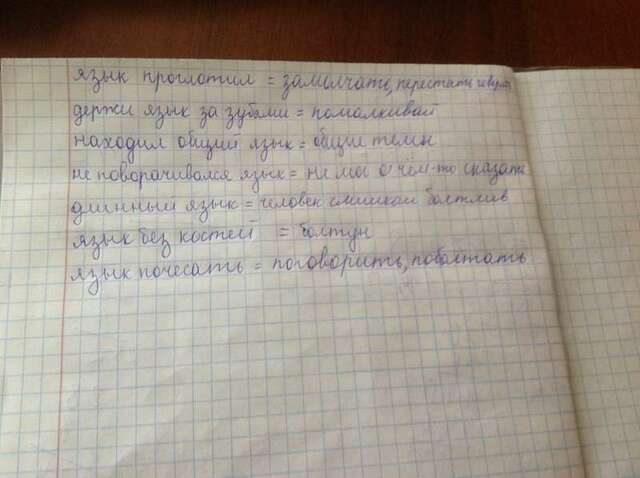 язык проглотил = замолчать, перестать говорить
держи язык за зубами = помалкивай
находил общий язык = общие темы
не поворачивался язык = не мог о чём-то сказать
длинный язык = человек слишком болтлив
язык без костей = болтун
язык почесать = поговорить, поболтать